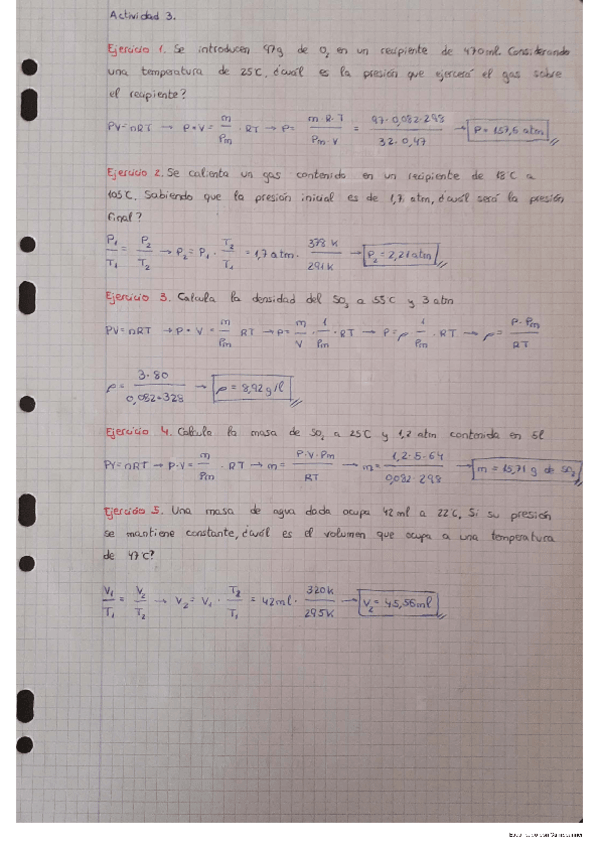 Actividad 3.
Ejercicio 1. Se introducen 97g de O₂ en un recipiente de 470ml. Considerando
una temperatura de 25°C, ¿cuál es la presión que ejercerá el gas sobre
el recipiente?
PV=nRT → P·V = m/Pm · RT → P = m·R·T / Pm·V = 97·0,082·298 / 32·0,47 → P = 157,6 atm
Ejercicio 2. Se calienta un gas contenido en un recipiente de 18°C a
105°C. Sabiendo que la presión inicial es de 1,7 atm, ¿cuál será la presión
final?
P₁/T₁ = P₂/T₂ → P₂ = P₁ · T₂/T₁ = 1,7 atm · 378 K / 291 K → P₂ = 2,21 atm
Ejercicio 3. Calcula la densidad del SO₃ a 55°C y 3 atm
PV=nRT → P·V = m/Pm RT → P = m/V · 1/Pm · RT → P = ρ 1/Pm · RT → ρ = P·Pm / RT
ρ = 3·80 / 0,082·328 → ρ = 8,92 g/l
Ejercicio 4. Calcula la masa de SO₂ a 25°C y 1,2 atm contenida en 5l
PV=nRT → P·V = m/Pm · RT → m = P·V·Pm / RT → m = 1,2·5·64 / 0,082·298 → m = 15,71 g de SO₂
Ejercicio 5. Una masa de agua dada ocupa 42 ml a 22°C. Si su presión
se mantiene constante, ¿cuál es el volumen que ocupa a una temperatura
de 47°C?
V₁/T₁ = V₂/T₂ → V₂ = V₁ · T₂/T₁ = 42ml · 320K / 295K → V₂ = 45,56ml